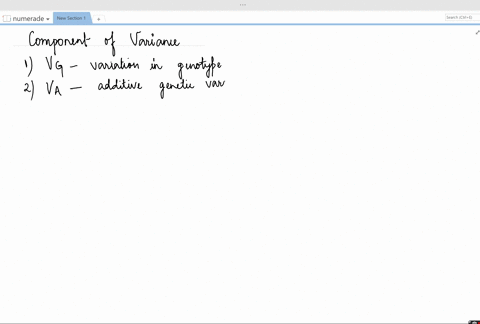 numerade
New Section 1
Search (Ctrl+E)
Component of Variance
1) VG – variation in genotype
2) VA – additive genetic var